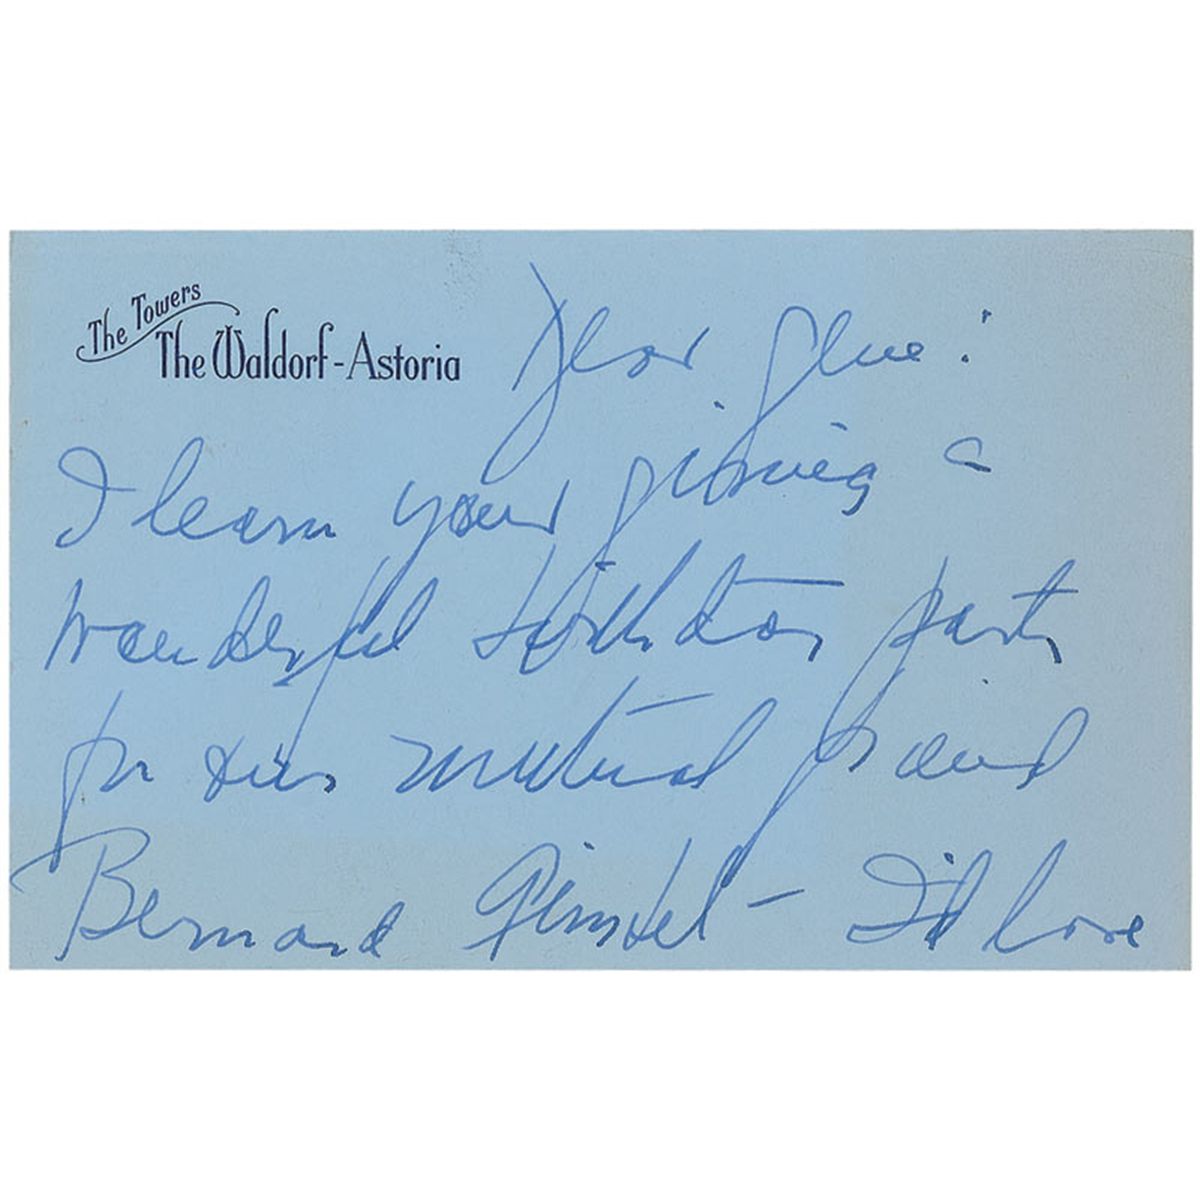 The Towers
The Waldorf-Astoria
Dear Gene:
I learn your giving a
wonderful birthday party
for our mutual friend
Bernard Gimbel - I'd love